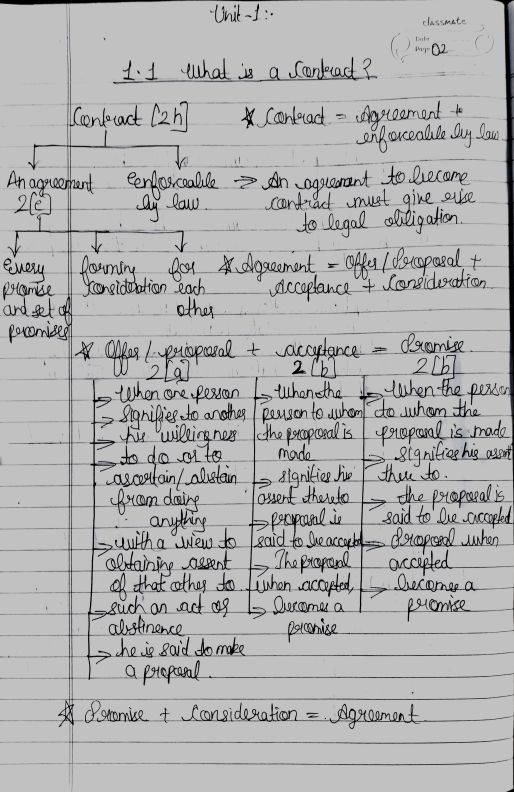 Unit-1:-
classmate
Date
Page 02
1.1 What is a Contract?
Contract [2h]
☆ Contract = Agreement +
enforceable by law
An agreement
2[e]
enforceable
by law
→ An agreement to become
contract must give rise
to legal obligation.
Every
promise
and set of
promises
forming
consideration
for
each
other
☆ Agreement = Offer/Proposal +
Acceptance + Consideration
☆ Offer/proposal + acceptance = Promise
2[a] 2[b] 2[b]
→ When one person
→ Signifies to another
→ his willingness
→ to do or to
ascertain/abstain
from doing
anything
→ with a view to
obtaining assent
of that other to
→ such an act or
abstinence
→ he is said to make
a proposal.
→ When the
person to whom
the proposal is
made
→ signifies his
assent thereto
→ proposal is
said to be accepted
→ The proposal
when accepted,
→ becomes a
promise
→ When the person
to whom the
proposal is made
→ Signifies his assent
there to.
→ the proposal is
said to be accepted
→ Proposal when
accepted
→ becomes a
promise
☆ Promise + Consideration = Agreement